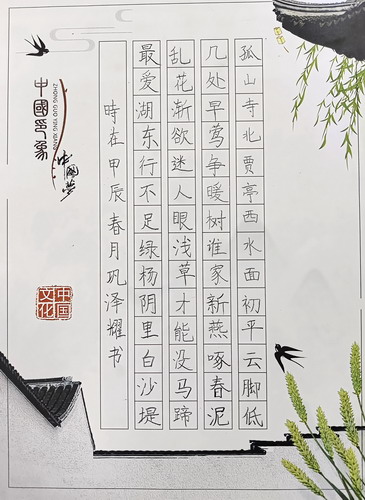 孤山寺北贾亭西水面初平云脚低
几处早莺争暖树谁家新燕啄春泥
乱花渐欲迷人眼浅草才能没马蹄
最爱湖东行不足绿杨阴里白沙堤
時在甲辰春月巩泽耀书
中國印象
ZHONG GUO YING XIANG
中國夢
中国文化